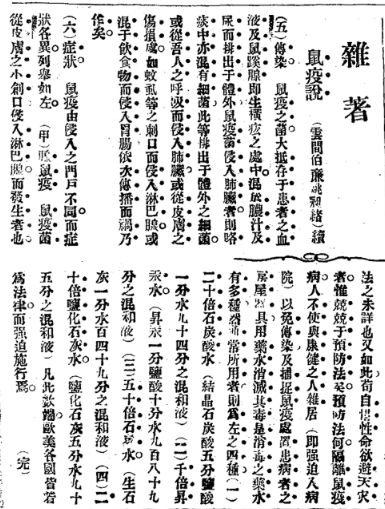 雜著
鼠疫說
(雲間伯廉姚和緒)續
(五)傳染　鼠疫之菌大抵存于患者之血
液及鼠蹊腺即生橫痃之處中混於膿汁及
尿而排出于體外鼠疫菌侵入肺臟者則咯
痰中亦混有細菌此等排出于體外之細菌
或從吾人之呼吸而侵入肺臟或從皮膚之
傷損處如蚊虱等之刺口而侵入淋巴腺或
混于飲食物而侵入胃腸依次傳播而禍乃
作矣
(六)症狀　鼠疫由侵入之門戶不同而症
狀各異列舉如左　(甲)腺鼠疫　鼠疫菌
從皮膚之小創口侵入淋巴腺而發生者也
法之未詳也又如此苟自惜性命欲避天災
者惟兢兢于預防法矣預防法何隔離鼠疫
病人不使與康健之人雜居(即强迫入病
院)以免傳染及捕捉鼠疫處置患病者之
房屋器具用藥水消滅其毒是消毒之藥水
有多種器通常所用者則為左之四種(一)
二十倍石炭酸水(結晶石炭酸五分鹽酸
一分水九十四分之混和液)(二)千倍昇
汞水(昇汞一分鹽酸十分水九百八十九
分之混和液)(三)五十倍石灰水(生石
灰一分水四十九分之混和液)(四)二
十倍鹽化石灰水(鹽化石灰五分水九十
五分之混和液)凡此數端歐美各國皆若
為法律而强迫施行焉　(完)